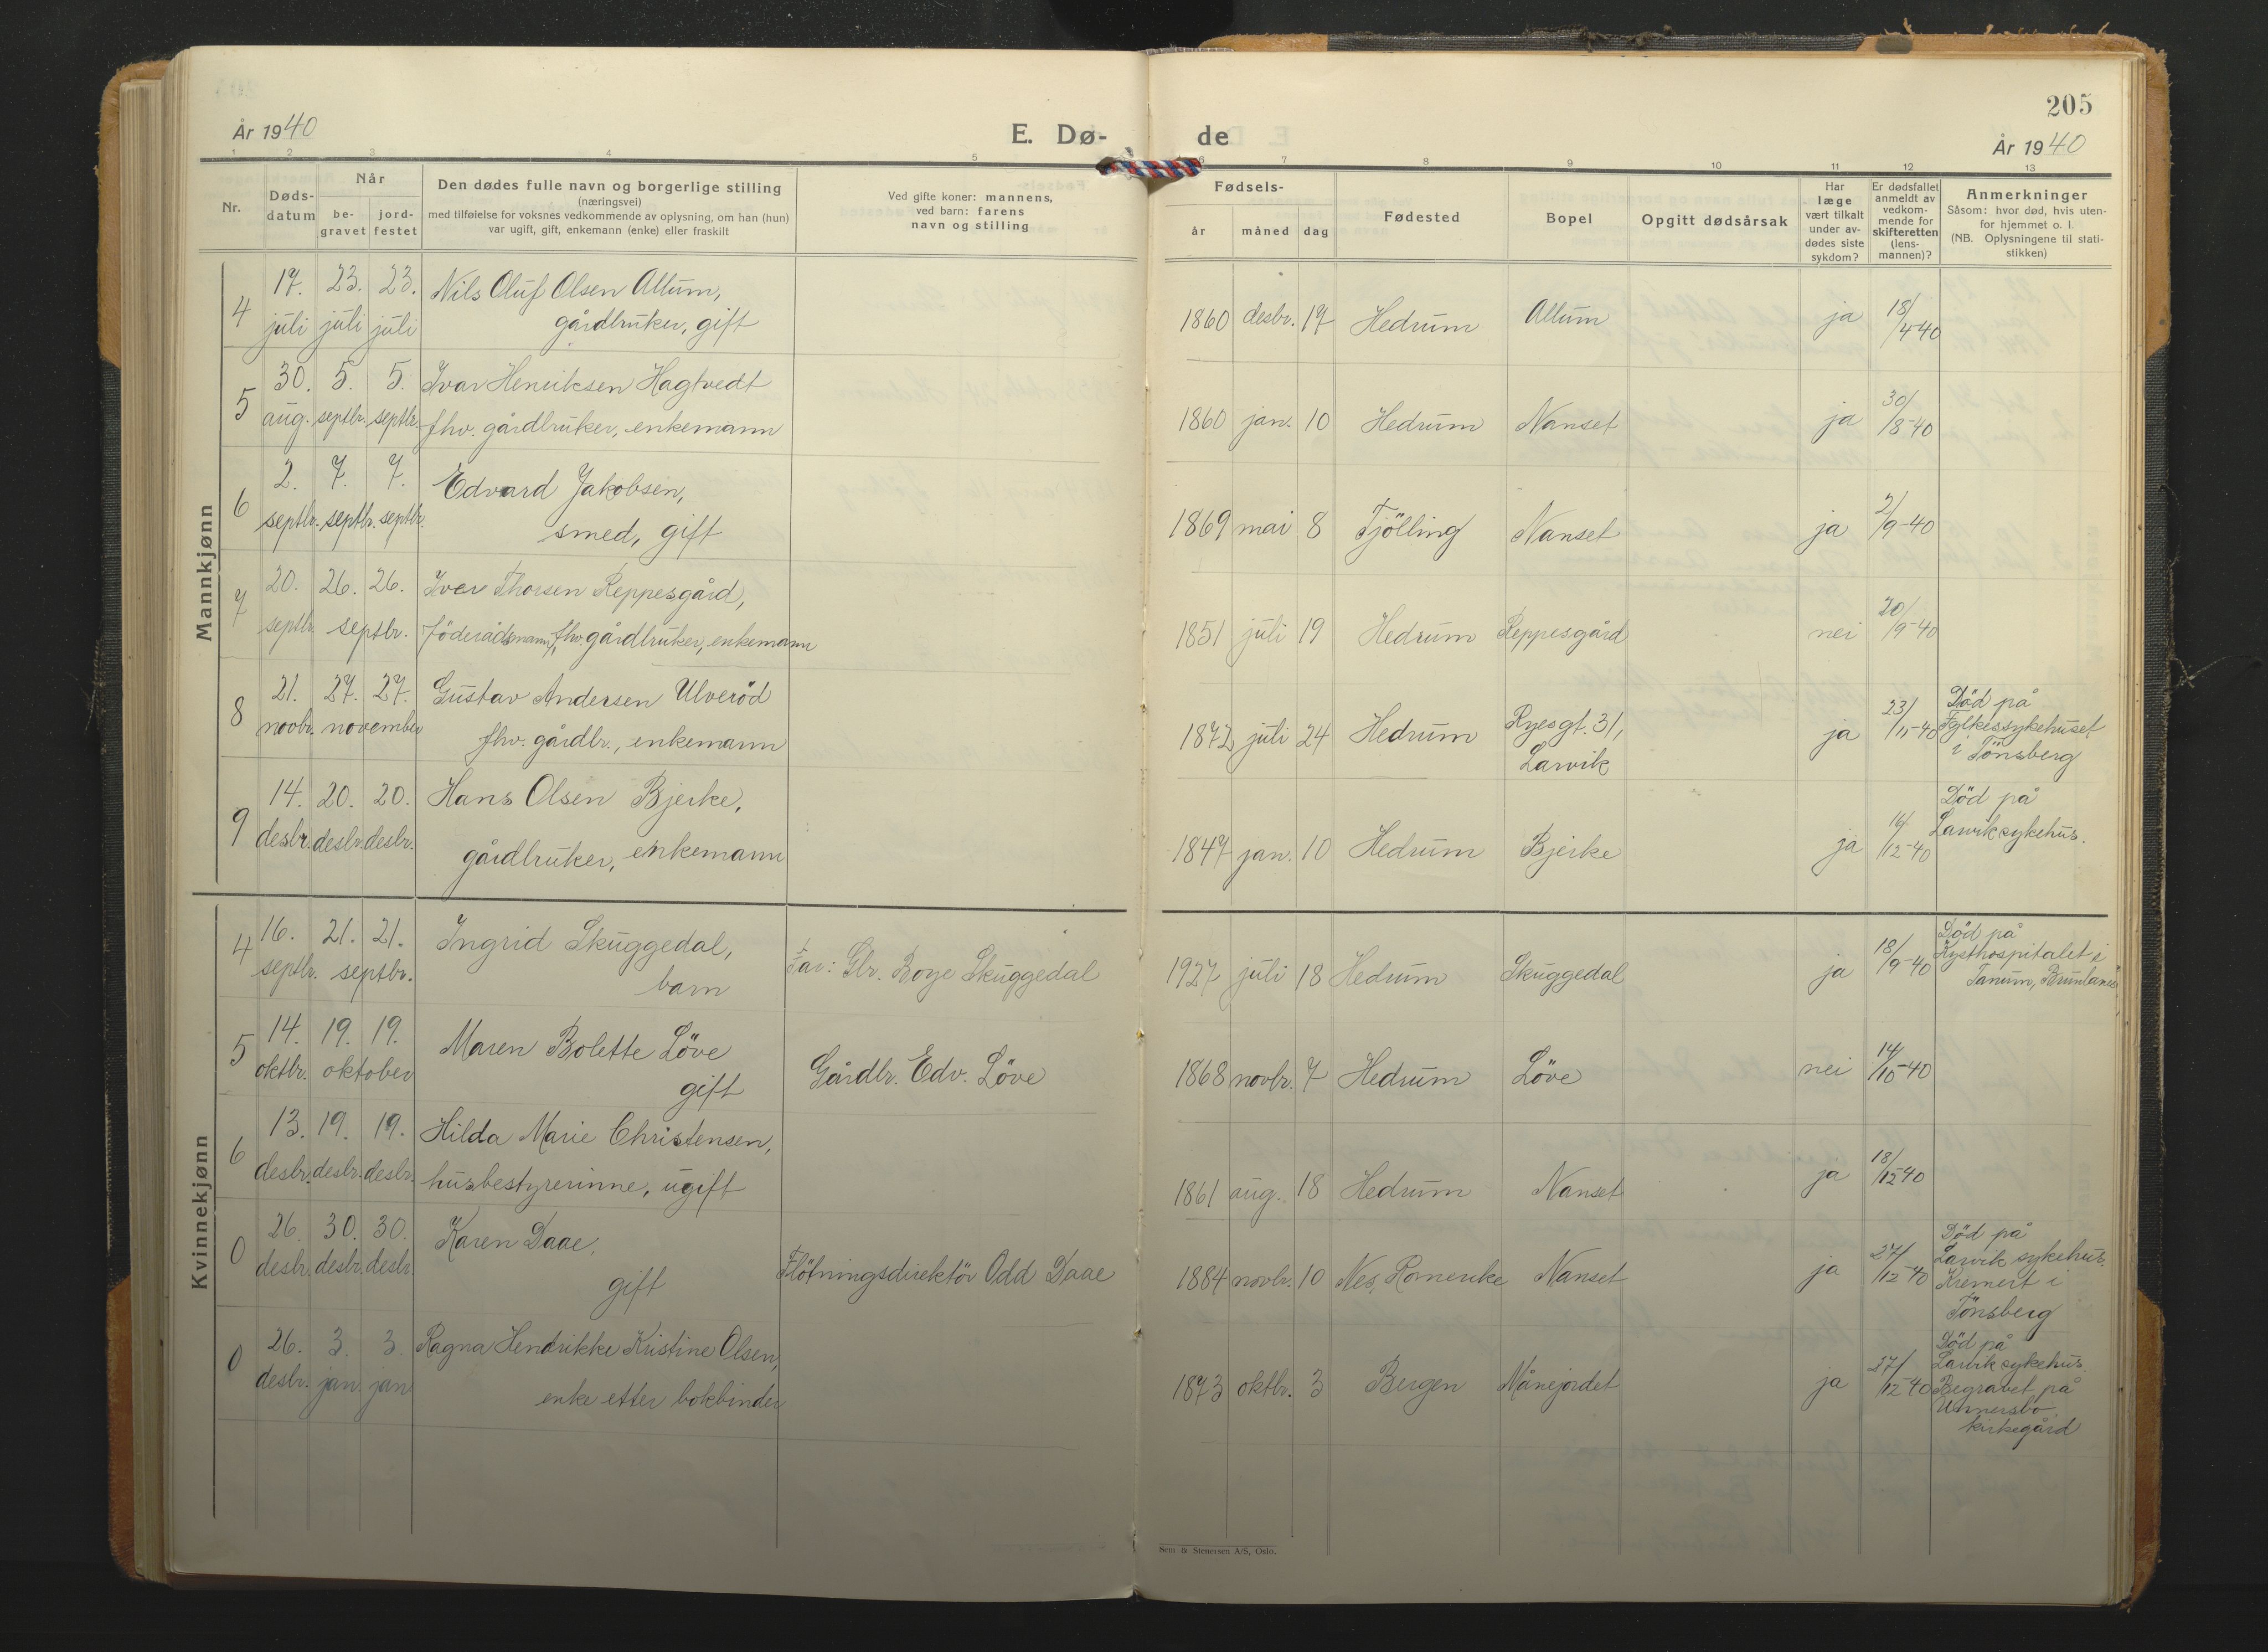 205
År 1940
E. Dø-
de
År 1940
1 2 3 4 5 6 7 8 9 10 11 12 13
Nr.
Døds-
datum
Når
be-
gravet
jord-
festet
Den dødes fulle navn og borgerlige stilling
(næringsvei)
med tilføielse for voksnes vedkommende av oplysning, om han (hun)
var ugift, gift, enkemann (enke) eller fraskilt
Ved gifte koner: mannens,
ved barn: farens
navn og stilling
Fødsels-
år
måned
dag
Fødested
Bopel
Opgitt dødsårsak
Har
læge
vært tilkalt
under av-
dødes siste
sykdom?
Er dødsfallet
anmeldt av
vedkom-
mende for
skifteretten
(lens-
mannen)?
Anmerkninger
Såsom: hvor død, hvis uten-
for hjemmet o. l.
(NB. Oplysningene til stati-
stikken)
Mannkjønn
4 17. juli 23. juli 23. juli Nils Oluf Olsen Allum,
gårdbruker, gift
1860 desbr. 17 Hedrum Allum ja 18/
5 30. aug. 5. septbr. 5. septbr. Ivar Henriksen Hagtvedt
fhv. gårdbruker, enkemann
1860 jan. 10 Hedrum Nanset ja 30/8-40
6 2. septbr. 7. septbr. 7. septbr. Edvard Jakobsen,
smed, gift
1869 mai 8 Tjölling Nanset ja 2/9-40
7 20. septbr. 26. 26. septbr. Iver Thorsen Reppesgård,
föderådsmann, fhv. gårdbruker, enkemann
1851 juli 19 Hedrum Reppesgård nei 20/9-40
8 21. novbr. 27. 27. november Gustav Andersen Ulveröd
fhv. gårdbr., enkemann
1872 juli 24 Hedrum Ryesgt. 31,
Larvik
ja 23/11-40
Död på
Fylkessykehuset
i Tönsberg
9 14. desbr. 20. desbr. 20. desbr. Hans Olsen Bjerke,
gårdbruker, enkemann
1847 jan. 10 Hedrum Bjerke ja /12-40
Död på
Larvik sykehus.
Kvinnekjønn
4 16. septbr. 21. 21. septbr. Ingrid Skuggedal,
barn
Far: Gbr. Borge Skuggedal
1927 juli 18 Hedrum Skuggedal ja 18/9-40
Död på
Kysthospitalet i
Tanum, Brunlanes
5 14. oktbr. 19. 19. oktober Maren Bolette Löve
gift
Gårdbr. Edv. Löve
1868 novbr. 7 Hedrum Löve nei 14/10-40
6 13. desbr. 19. desbr. 19. desbr. Hilda Marie Christensen,
husbestyrerinne, ugift
1861 aug. 18 Hedrum Nanset ja 18/12-40
0 26. desbr. 30. desbr. 30. desbr. Karen Daae,
gift
Flötningsdirektör Odd Daae
1884 novbr. 10 Nes, Romerike Nanset ja 27/12-40
Död på
Larvik sykehus.
Kremert i
Tönsberg
0 26. desbr. 3. jan. 3. jan. Ragna Hendrikke Kristine Olsen,
enke etter bokbinder
1873 oktbr. 3 Bergen Månejordet ja 27/12-40
Död på
Larvik sykehus
Begravet på
kirkegård
Sem & Stenersen A/S, Oslo.